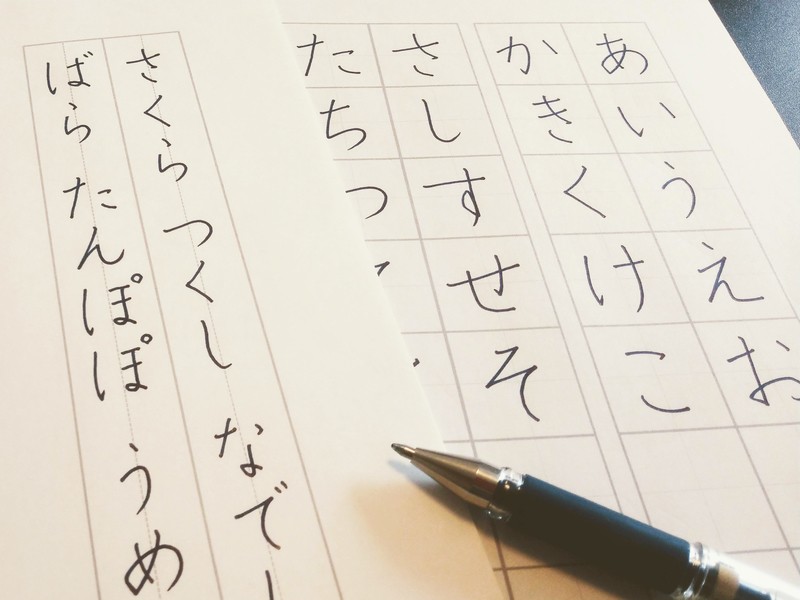 あいうえお
かきくけこ
さしすせそ
たちつ
さくら つくし なで
ばら たんぽぽ うめ